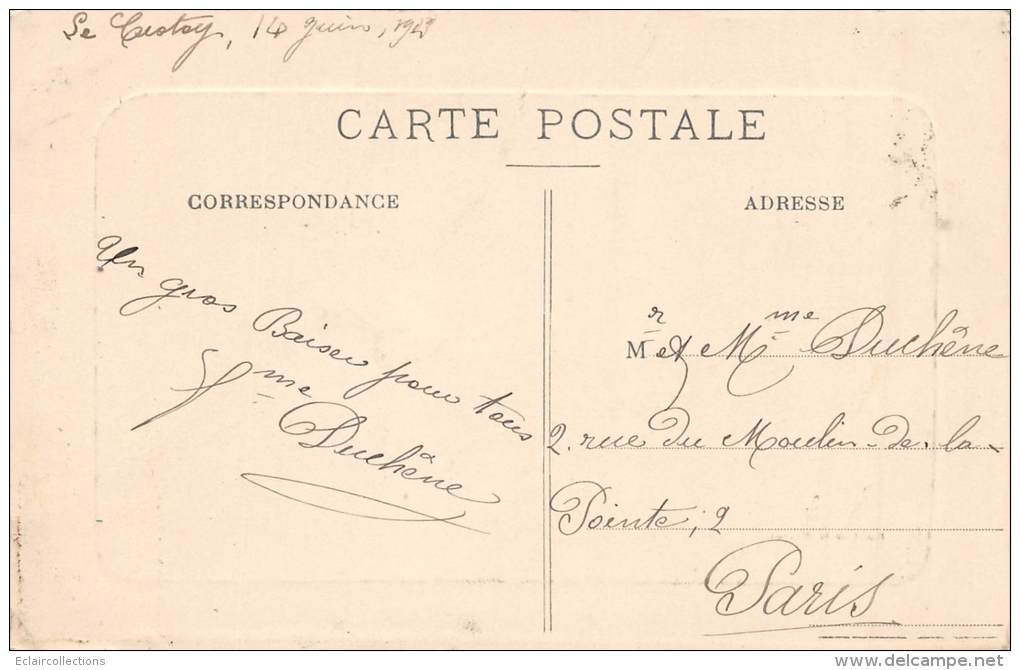 Le Crotoy, 14 juin, 19
CARTE POSTALE
CORRESPONDANCE
Un gros Baiser pour tous
Vme Duchêne
ADRESSE
Mr et Mme Duchêne
2. rue du Moulin-de-la-
Pointe, 2
Paris
Eclaircollections
www.delcampe.net